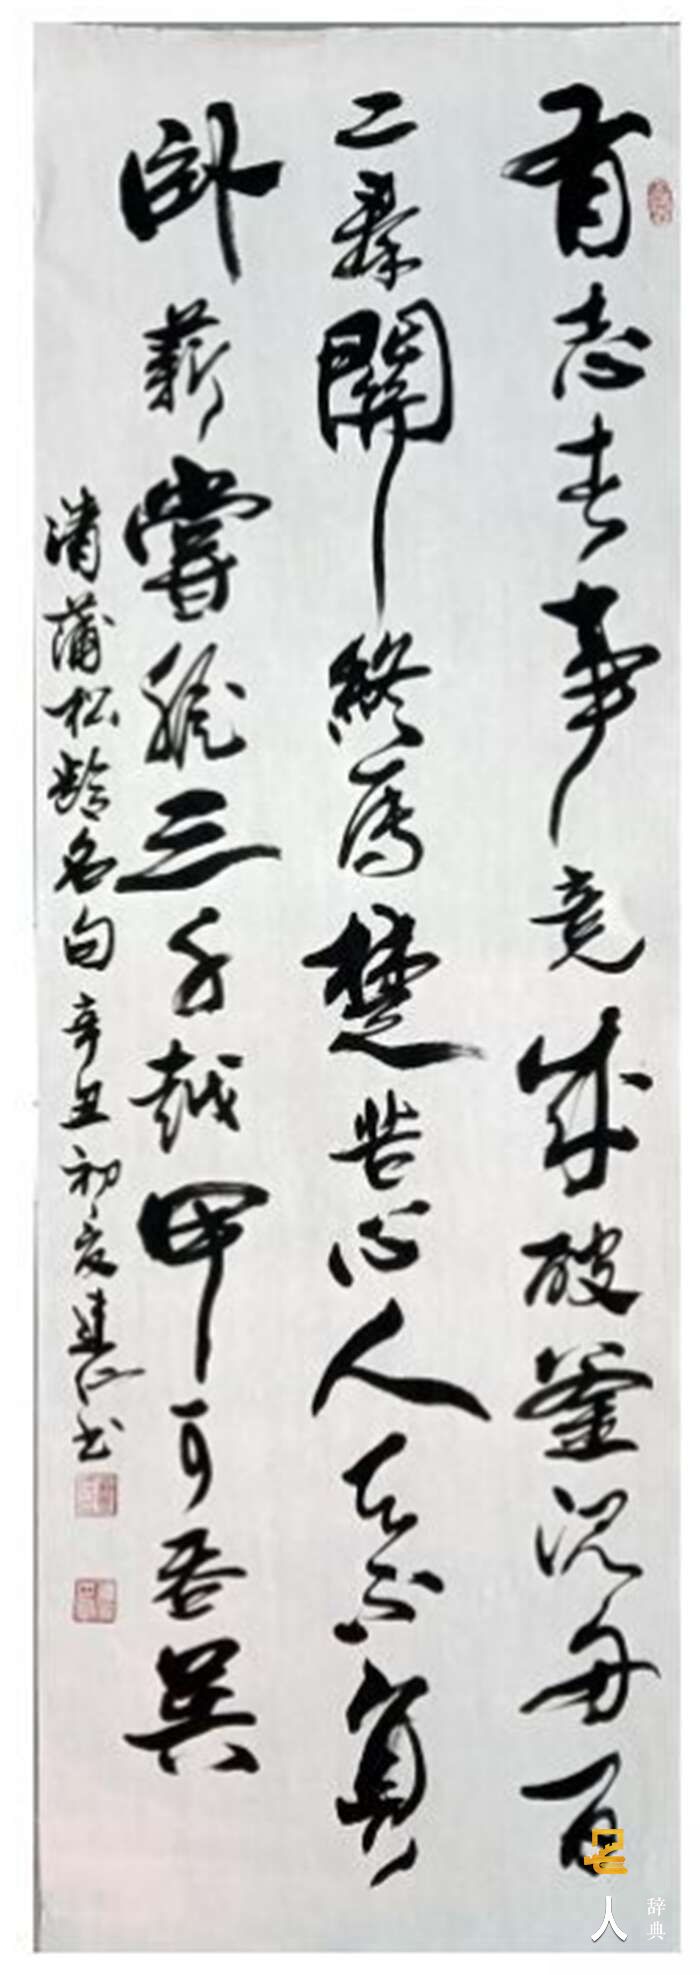 有志者事竟成破釜沉舟百
二秦關終屬楚苦心人天不負
卧薪嘗膽三千越甲可吞吳
清蒲松齡名句辛丑初夏建书
人
辞典